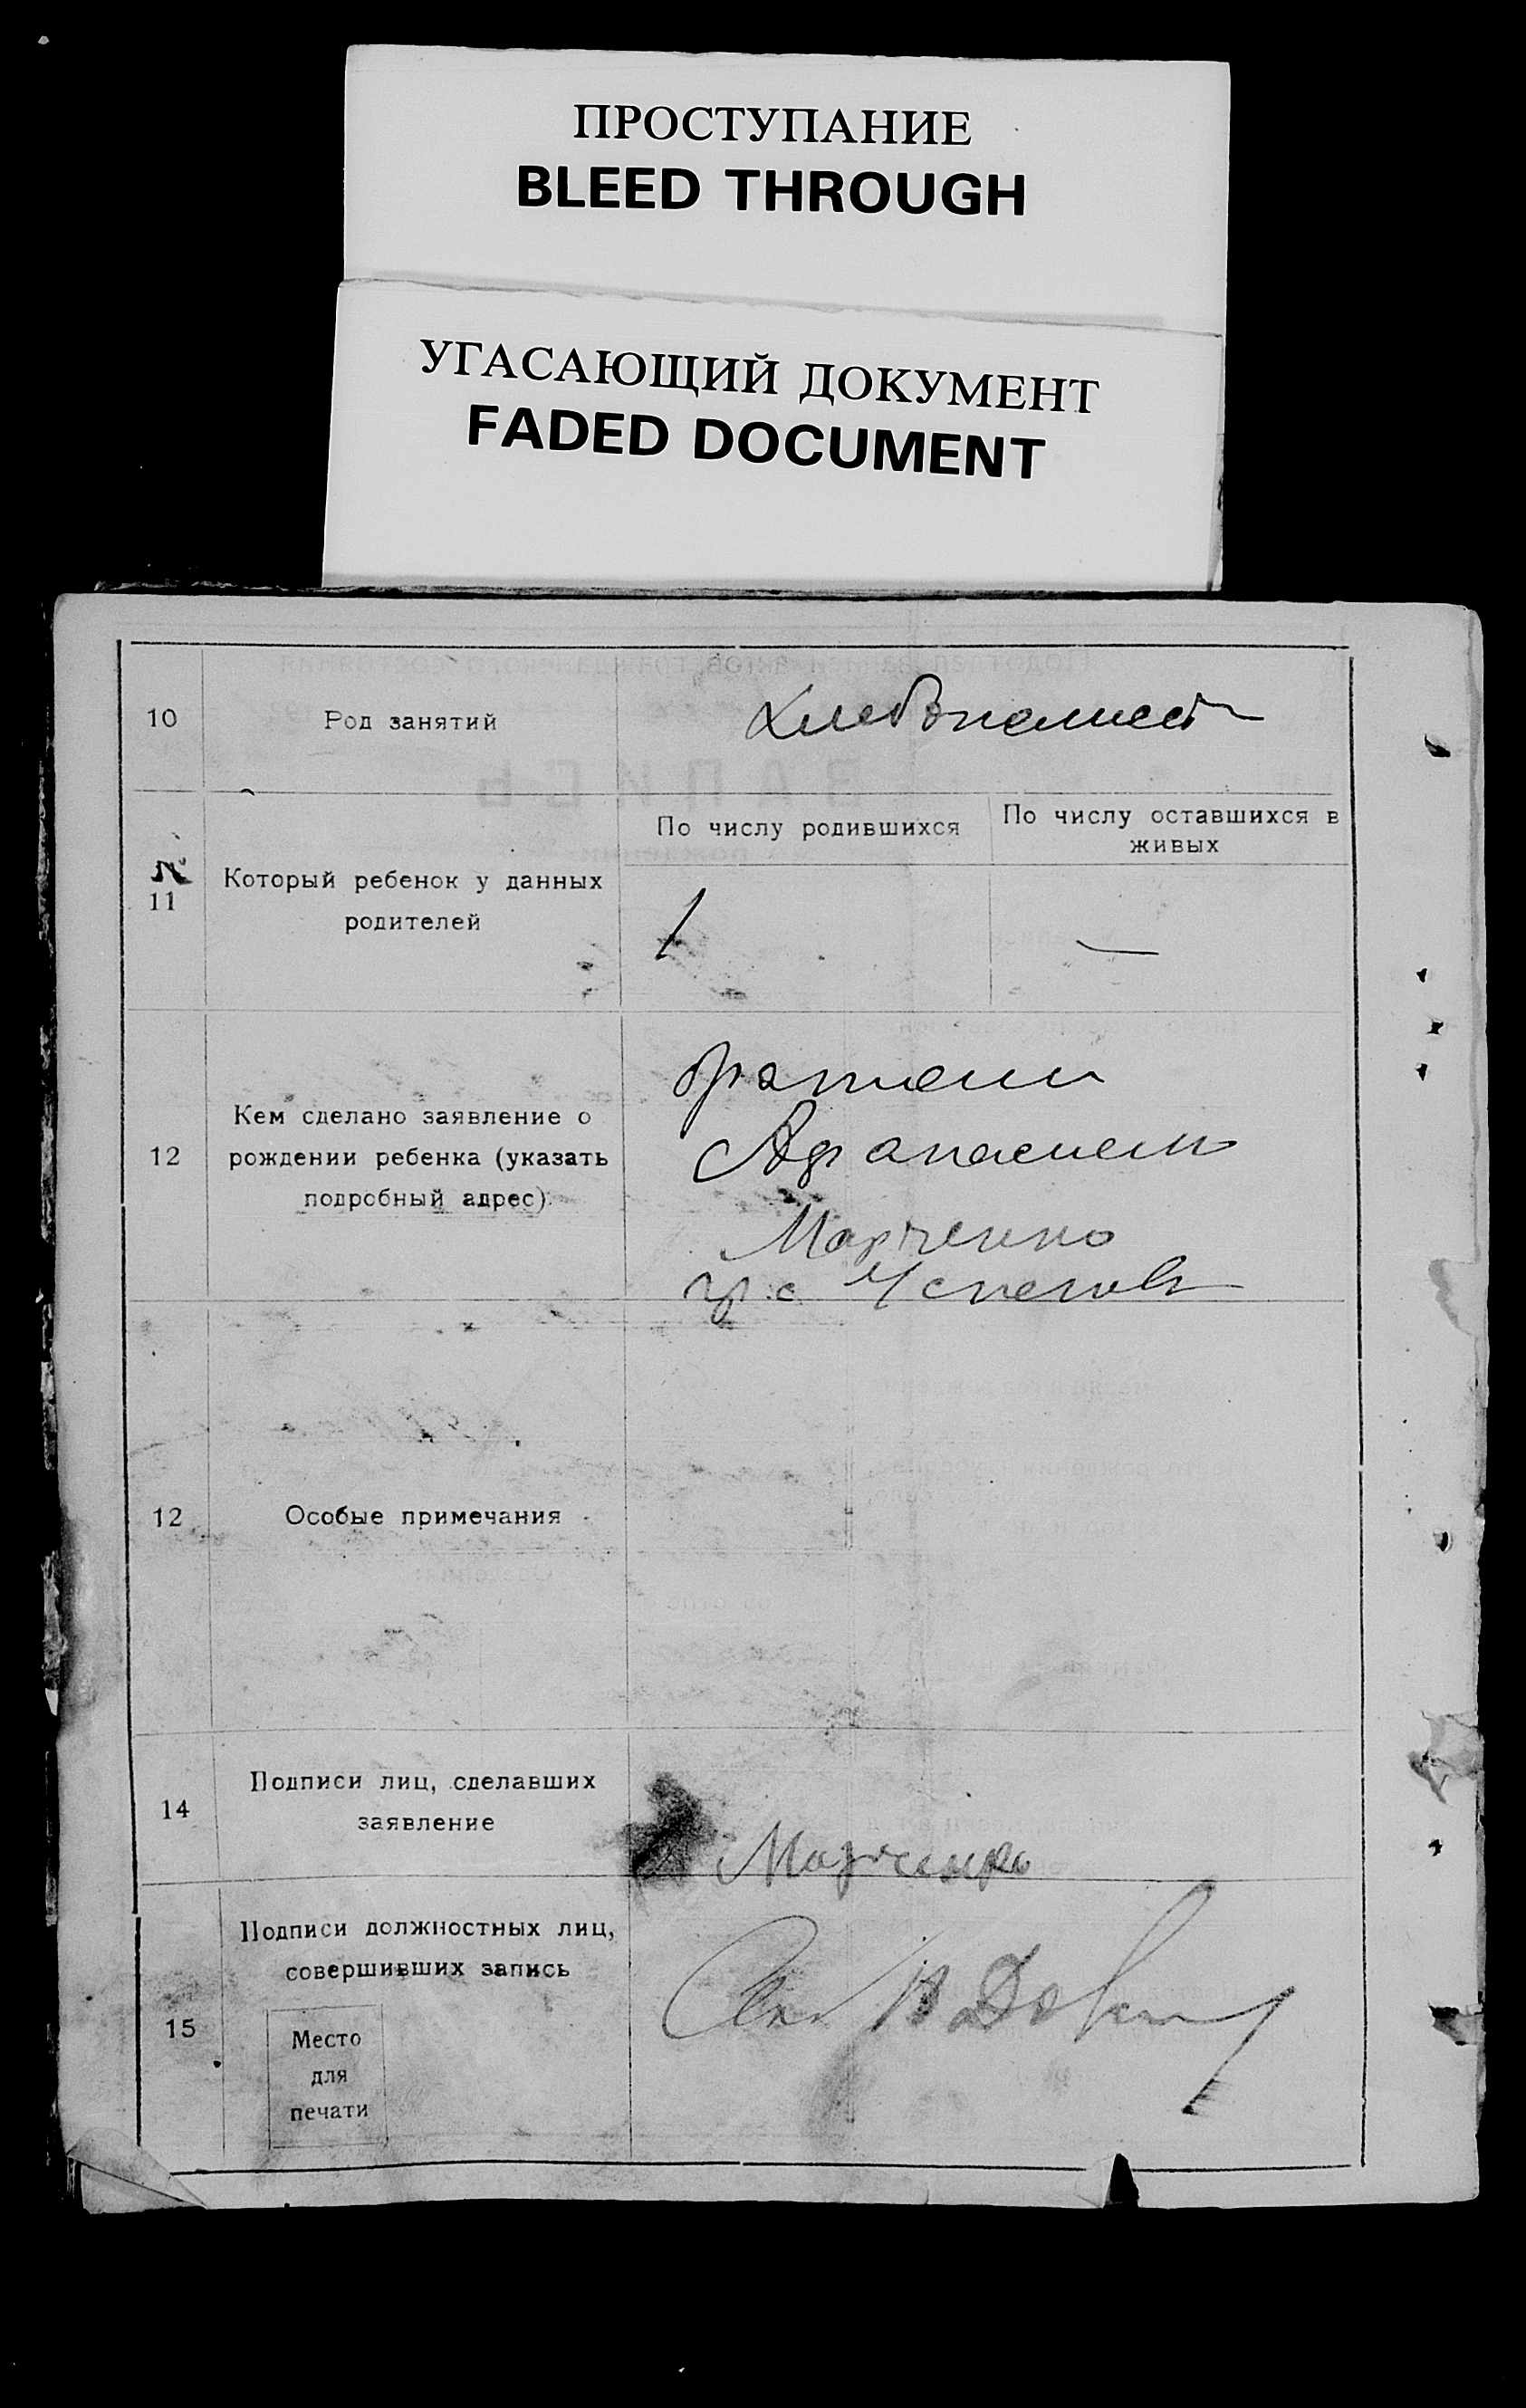 ПРОСТУПАНИЕ
BLEED THROUGH
УГАСАЮЩИЙ ДОКУМЕНТ
FADED DOCUMENT
10
Род занятий
11
Который ребенок у данных
родителей
По числу родившихся
По числу оставшихся в
живых
1
—
12
Кем сделано заявление о
рождении ребенка (указать
подробный адрес).
Афанасием
Марченко
гр. с
12
Особые примечания
14
Подписи лиц, сделавших
заявление
Марченко
15
Подписи должностных лиц,
совершивших запись
Место
для
печати